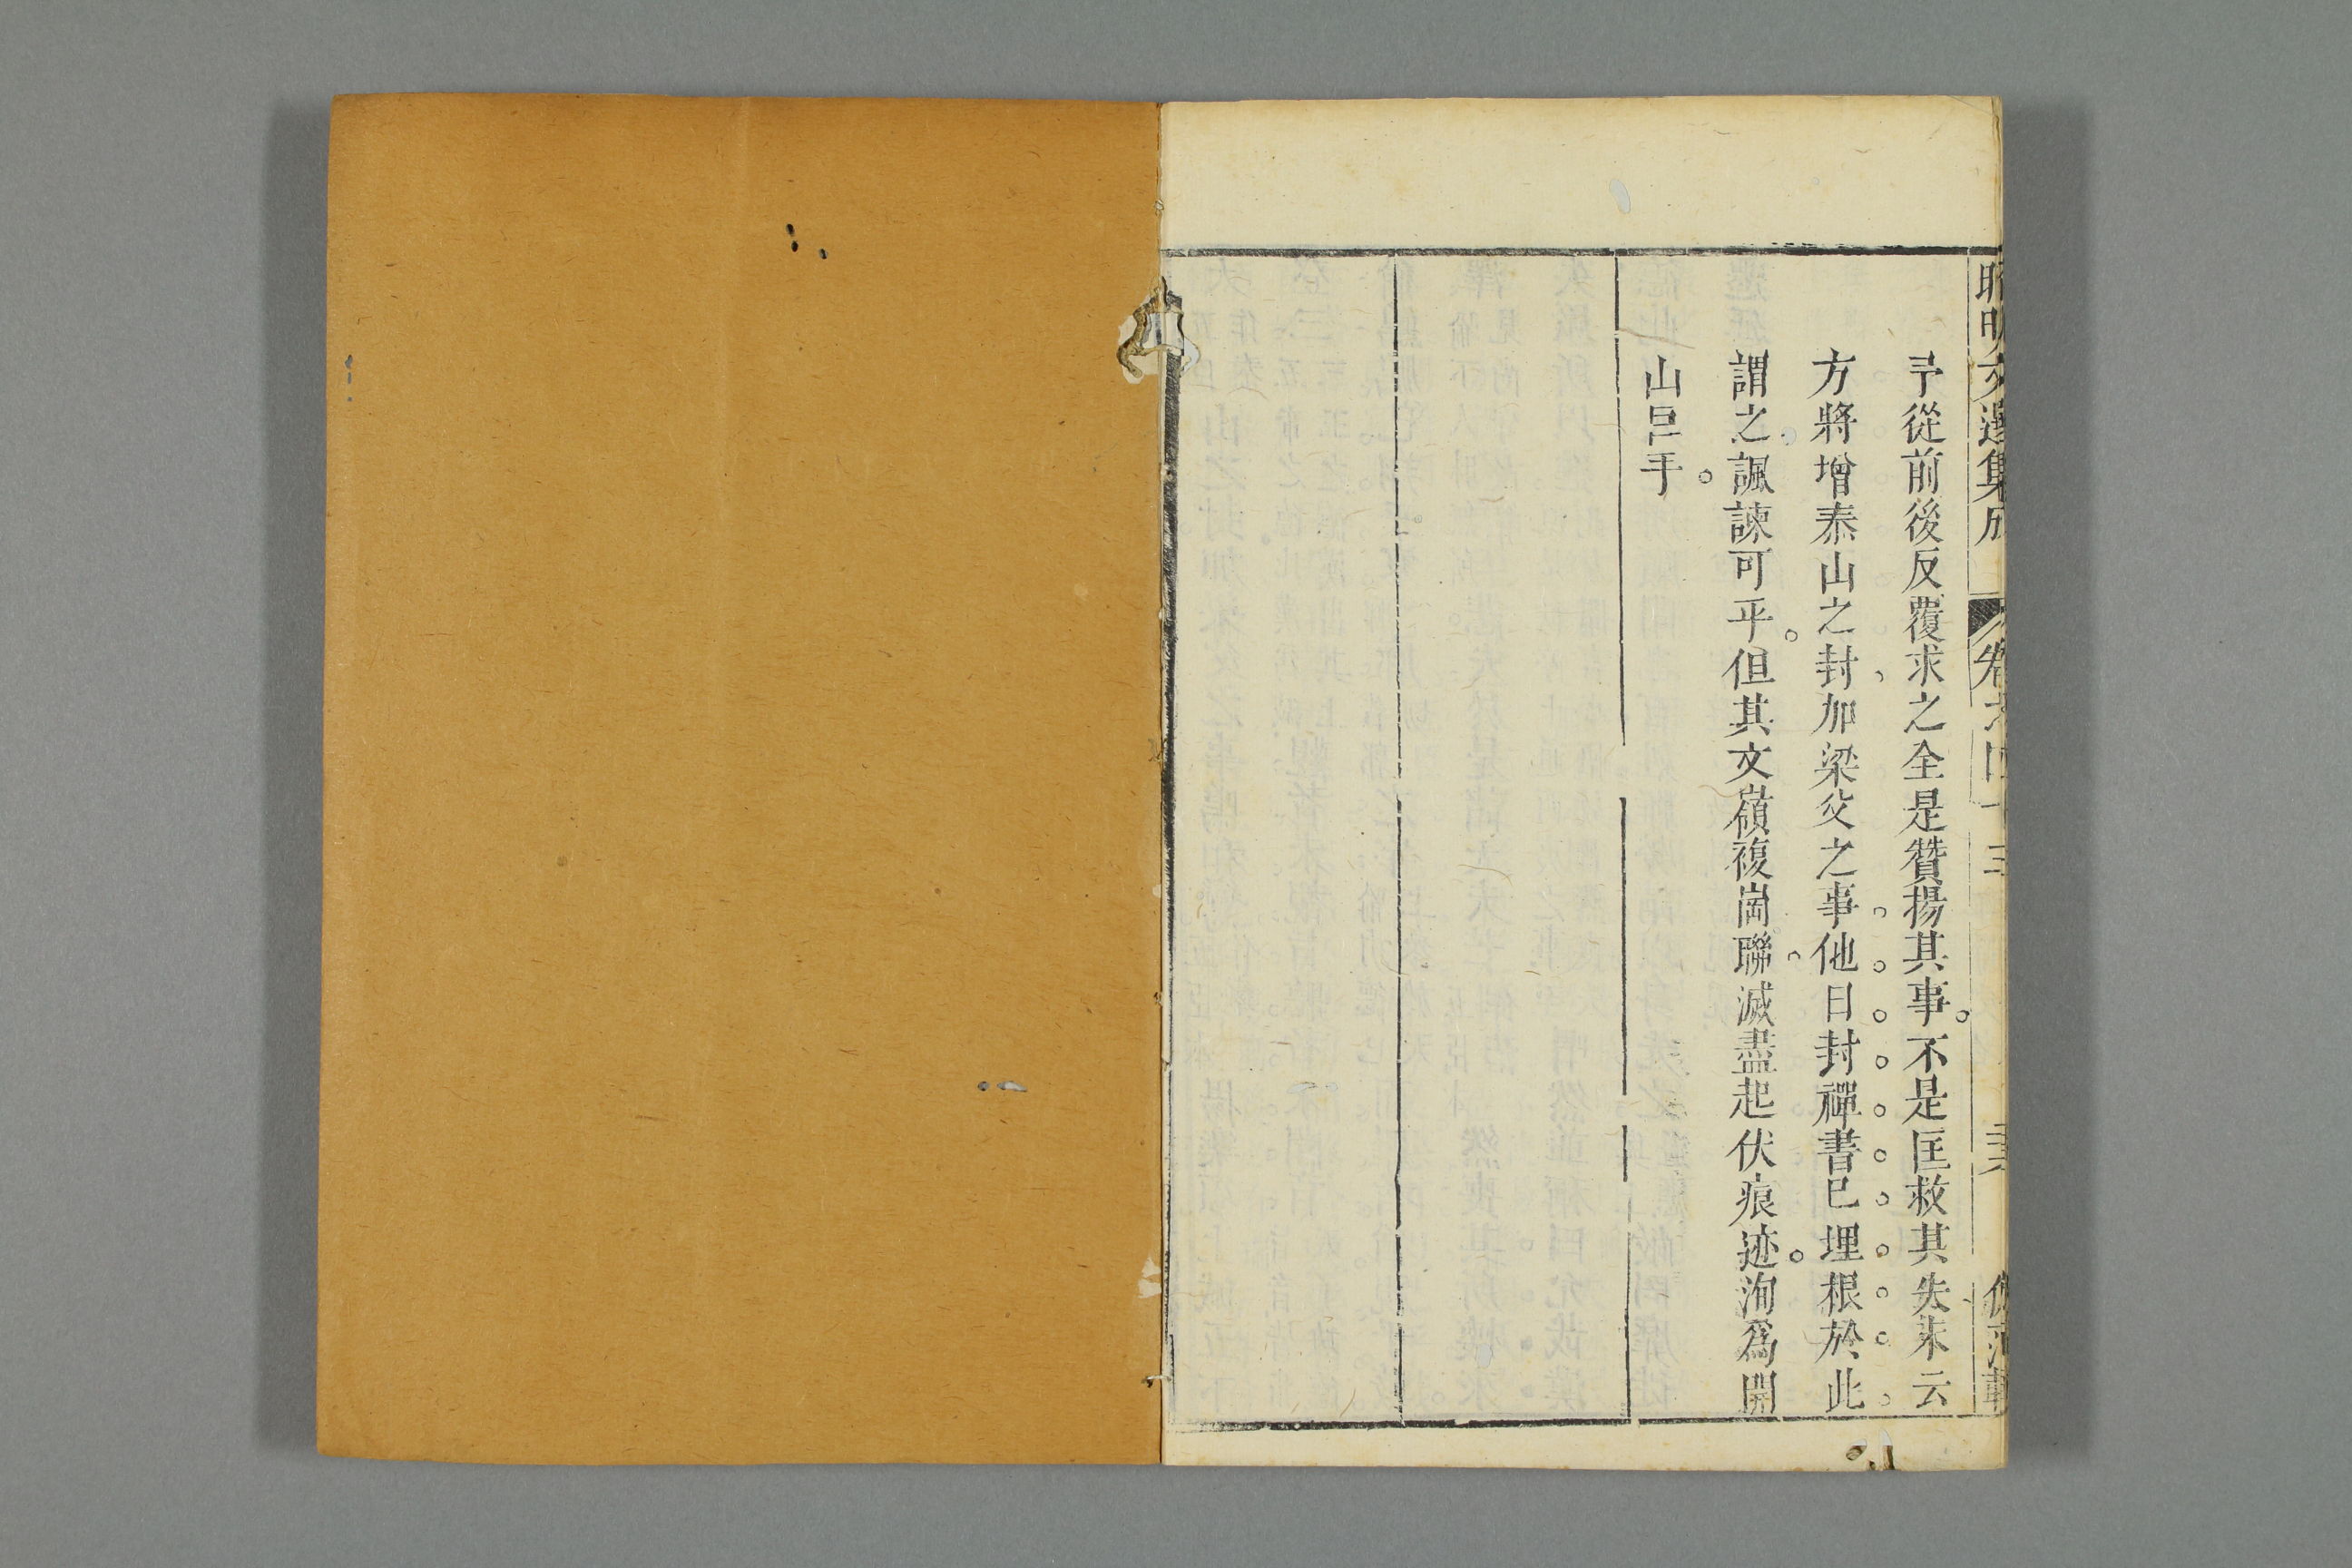 予從前後反覆求之全是贊揚其事。不是匡救其失末云
方將增泰山之封、加梁父之事他日封禪書已埋根於此
謂之諷諫可乎。但其文嶺複崗聯、滅盡起伏痕迹。洵爲開
山巨手。
昭明文選集成
卷